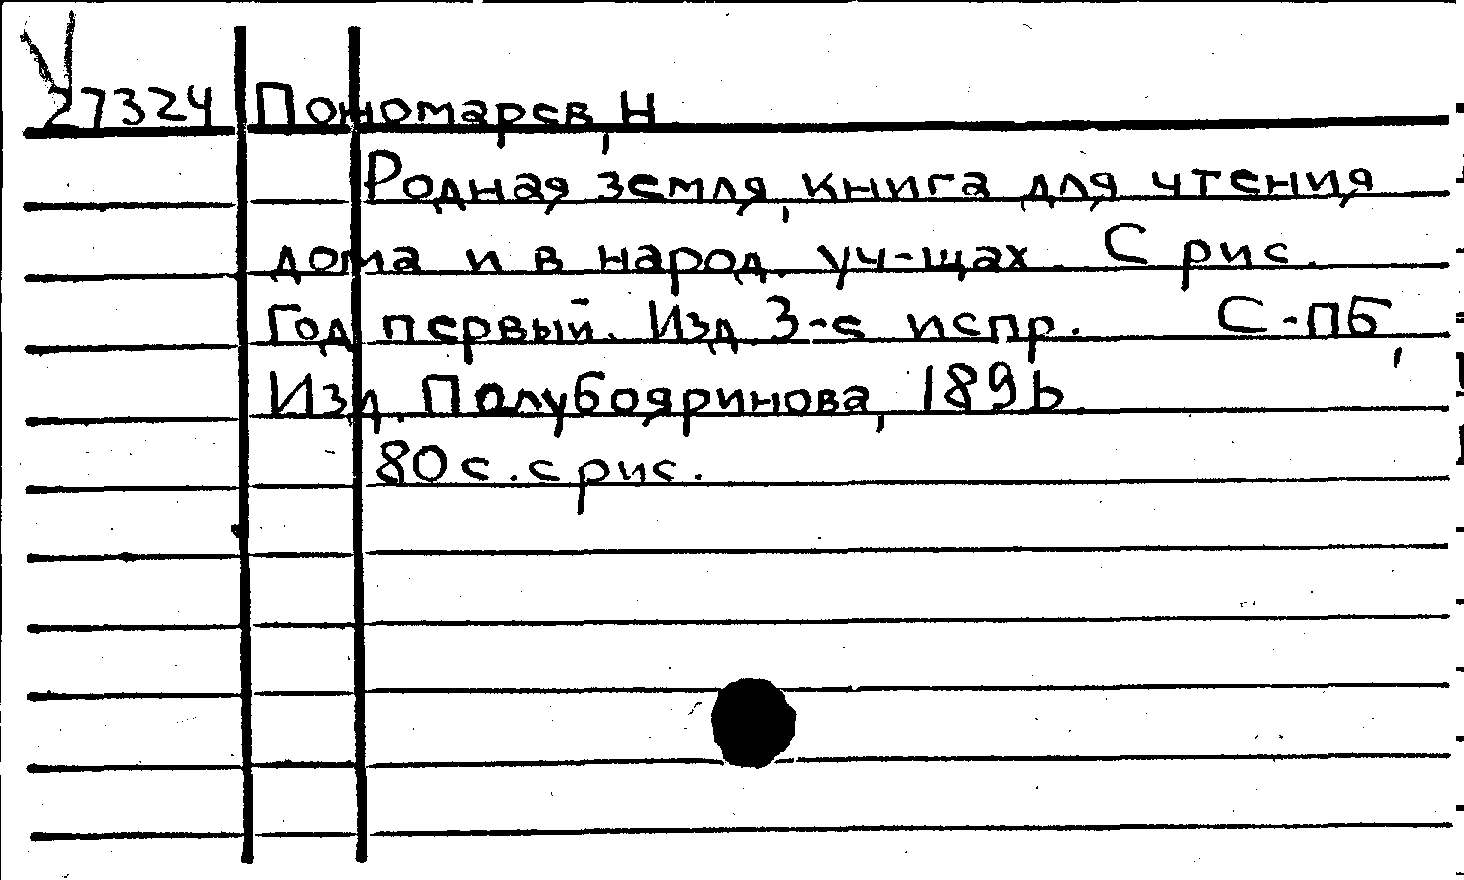 27324 Пономарев, Н.
Родная земля, книга для чтения
дома и в народ. уч-щах. С рис.
Год первый. Изд 3-е испр. С-ПБ,
Изд. Полубояринова, 1896
80 с. с рис.